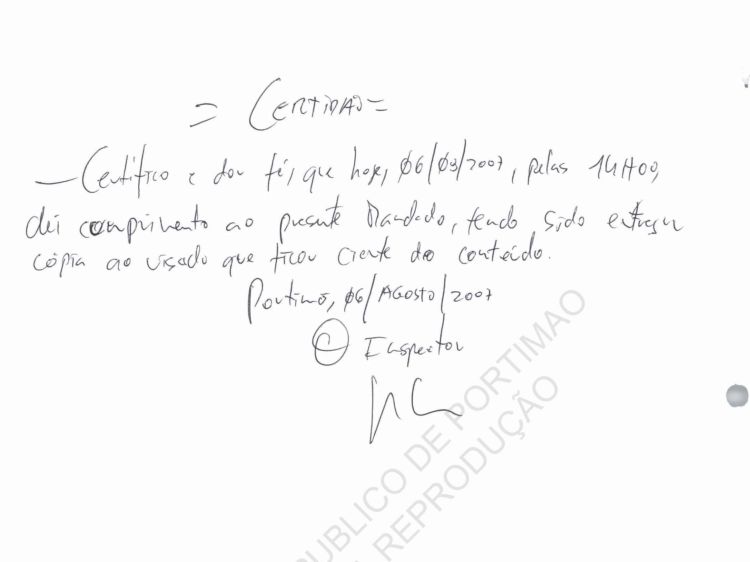 = CERTIDÃO =
— Certifico e dou fé, que hoje, 06/08/2007, pelas 14H00,
dei comprimento ao presente Mandado, tendo sido entregue
cópia ao visado que ficou ciente do conteúdo.
Portimão, 06/AGOSTO/2007
O Inspector
PUBLICO DE PORTIMAO
REPRODUÇÃO